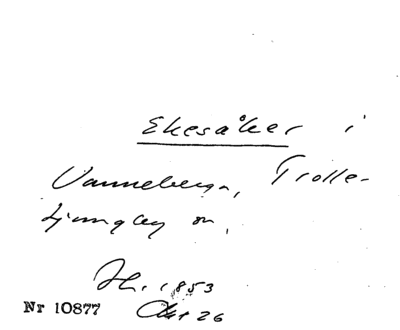 Ekesåker i
Vanneberga, Trolle-
Ljungby sn.
Hr. 1853
Nr 10877 Akt 26